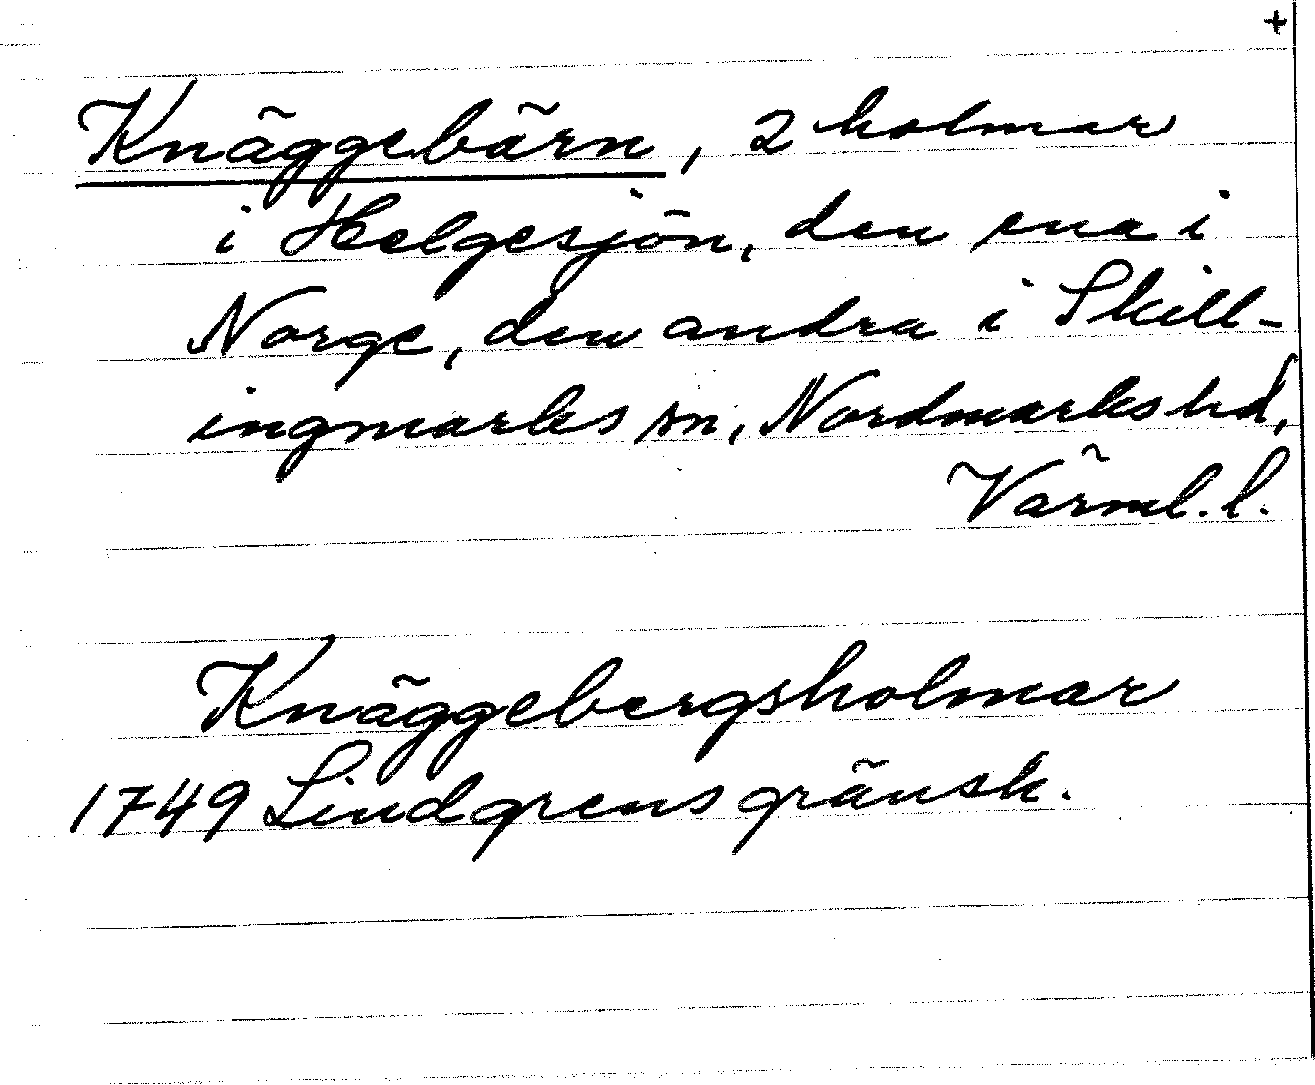 +
Knäggebärn, 2 holmar
i Helgesjön, den ena i
Norge, den andra i Skill-
ingmarks sn, Nordmarks hd,
Värml. l.
Knäggebergsholmar
1749 Lindgrens gränsk.